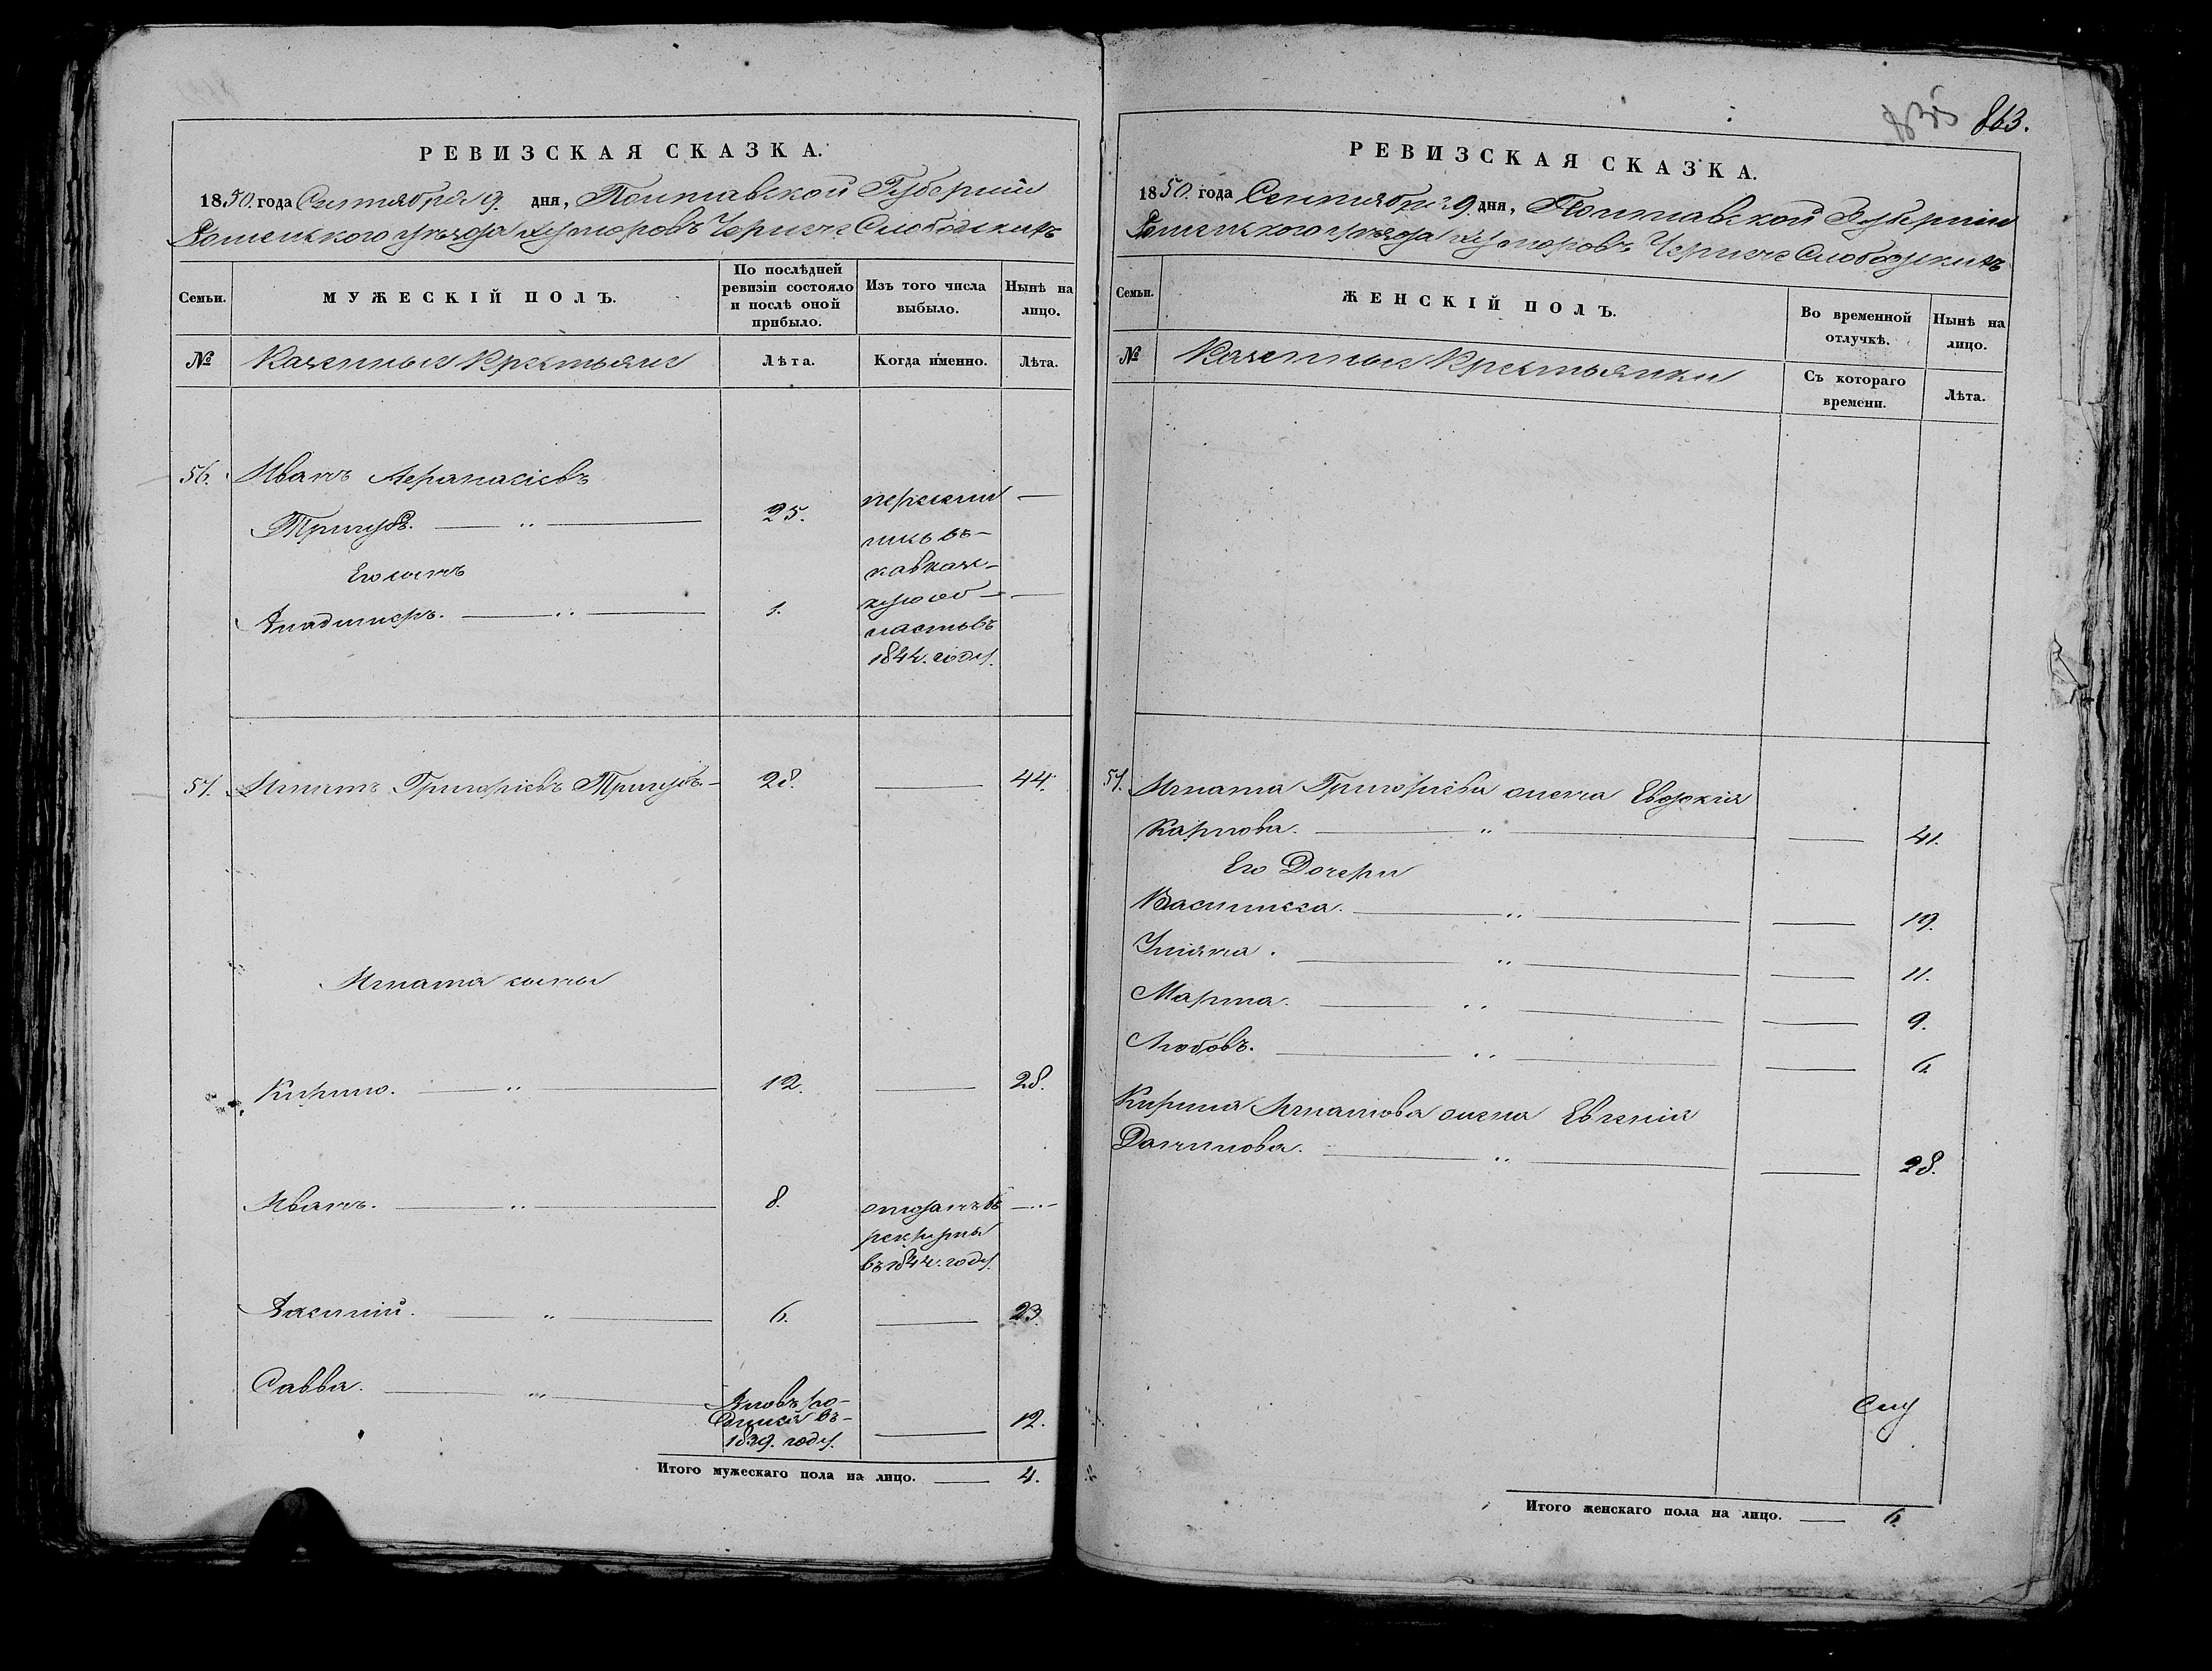 РЕВИЗСКАЯ СКАЗКА.
1850. года Сентября 9. дня, Полтавской Губерніи
уѣзда Хуторовъ Слободскихъ
Семьи.
МУЖЕСКІЙ ПОЛЪ.
По послѣдней ревизіи состояло и послѣ оной прибыло.
Изъ того числа выбыло.
Нынѣ на лицо.
№
Казенные Крестьяне
Лѣта.
Когда именно.
Лѣта.
56. Иванъ Афанасіевъ
Тригубъ. 25. пересели
Его сынъ
Владимеръ. 1.
ласть въ
1844. году.
57. Игнатъ Григоріевъ Тригубъ 28. 44.
Игната сыны
Кирило. 12. 28.
Иванъ. 8. отданъ въ
рекруты
въ 1844. году.
Василий. 6. 23.
Савва. Вновь ро-
дился въ
1839. году. 12.
Итого мужескаго пола на лицо. 4.
835 863.
РЕВИЗСКАЯ СКАЗКА.
1850. года Сентября 9. дня, Полтавской Губерніи
уѣзда Хуторовъ Слободскихъ
Семьи.
ЖЕНСКІЙ ПОЛЪ.
Во временной отлучкѣ.
Нынѣ на лицо.
№
Казенные Крестьянки
Съ котораго времени.
Лѣта.
57. Игната Григоріева жена Евдокія
Карпова. 41.
Его Дочери
Василиса. 19.
Уліяна. 11.
Марѳа. 9.
Любовъ. 6.
Кирила Игнатова жена Евгенія
Данилова. 28.
Итого женскаго пола на лицо. 6.